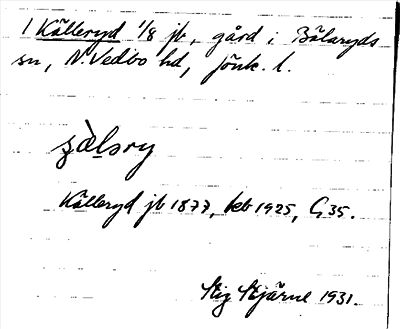 1 Källeryd 1/8 jb, gård i Bälaryds
sn, N. Vedbo hd, Jönk. l.
Källeryd jb 1877, kob 1925, G35.
Stig Stjärne 1931.